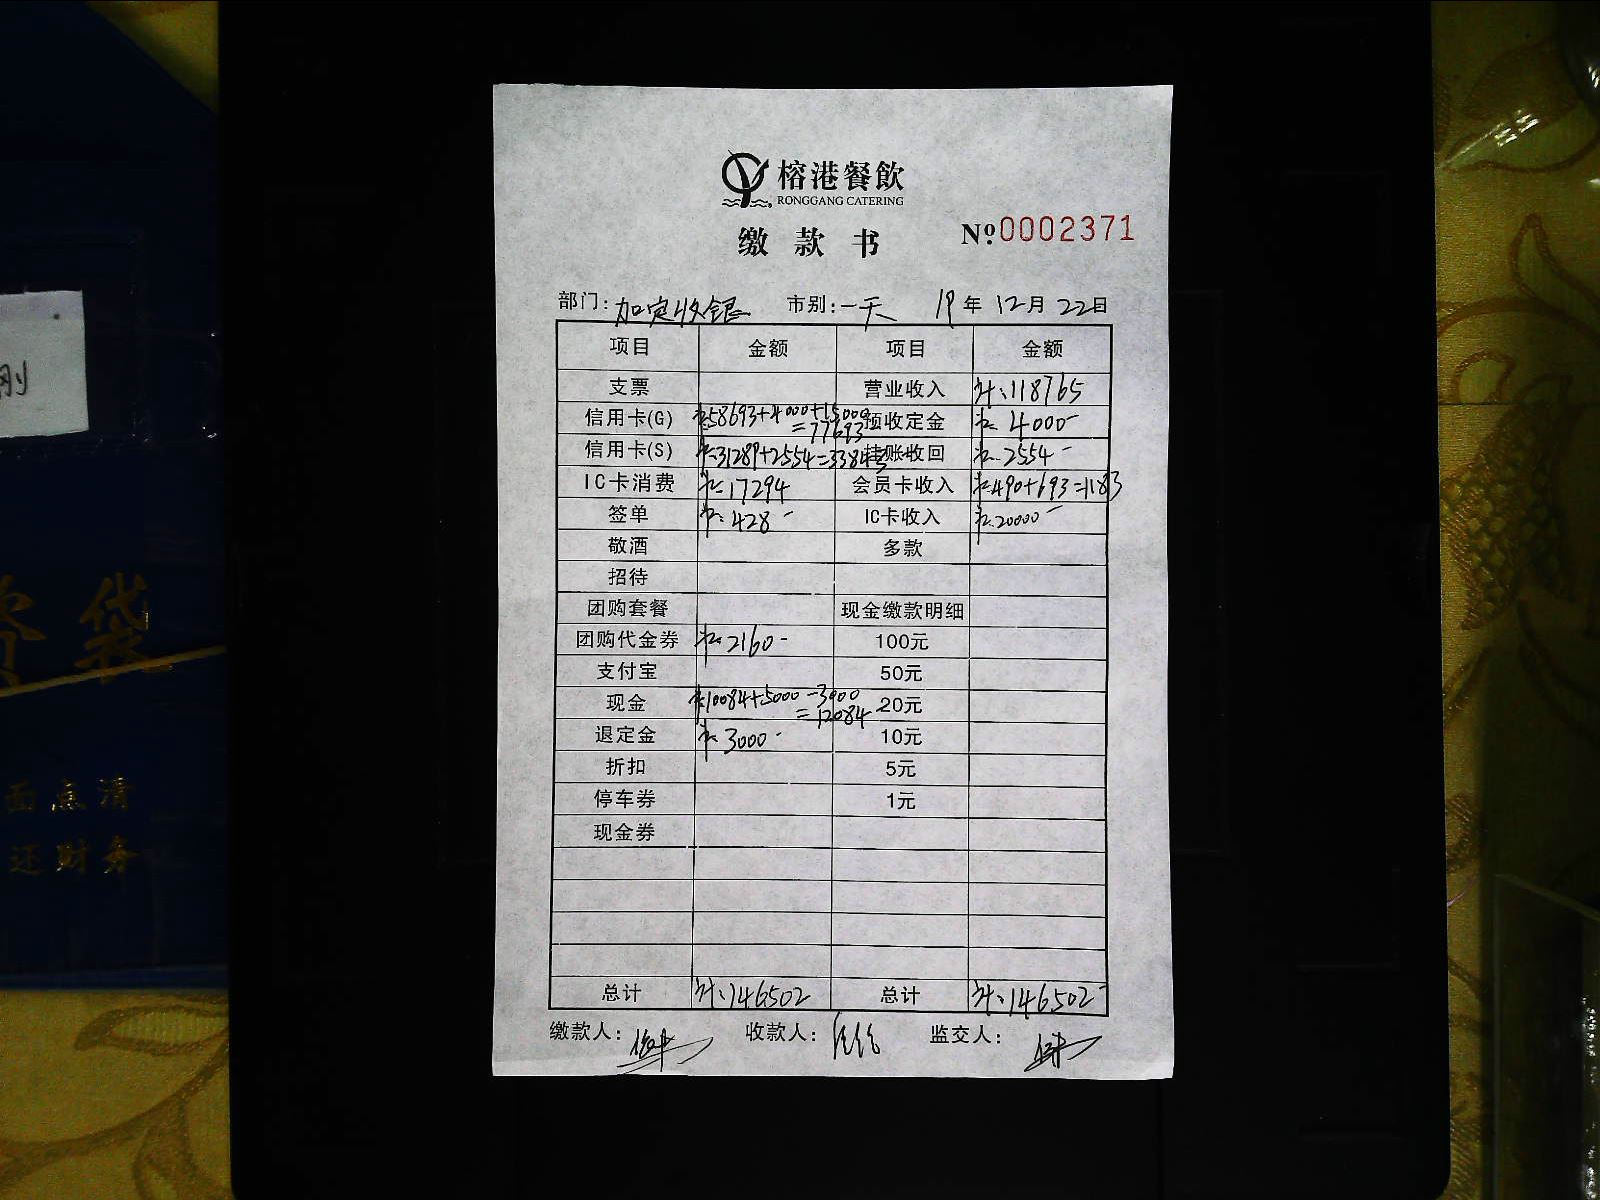 榕港餐飲
RONGGANG CATERING
缴款书
№0002371
部门: 加定收银 市别: 一天 19年 12月 22日
项目 金额 项目 金额
支票 营业收入 118765
信用卡(G) 58693+4000+15000=77693 预收定金 4000-
信用卡(S) 31289+2554=33843 挂账收回 2554-
IC卡消费 17294 会员卡收入 490+693=1183
签单 428- IC卡收入 20000-
敬酒 多款
招待
团购套餐 现金缴款明细
团购代金券 2160- 100元
支付宝 50元
现金 10084+5000-3000=12084 20元
退定金 3000- 10元
折扣 5元
停车券 1元
现金券
总计 146502 总计 146502-
缴款人: 收款人: 监交人:
刚
袋
面点清
还财务